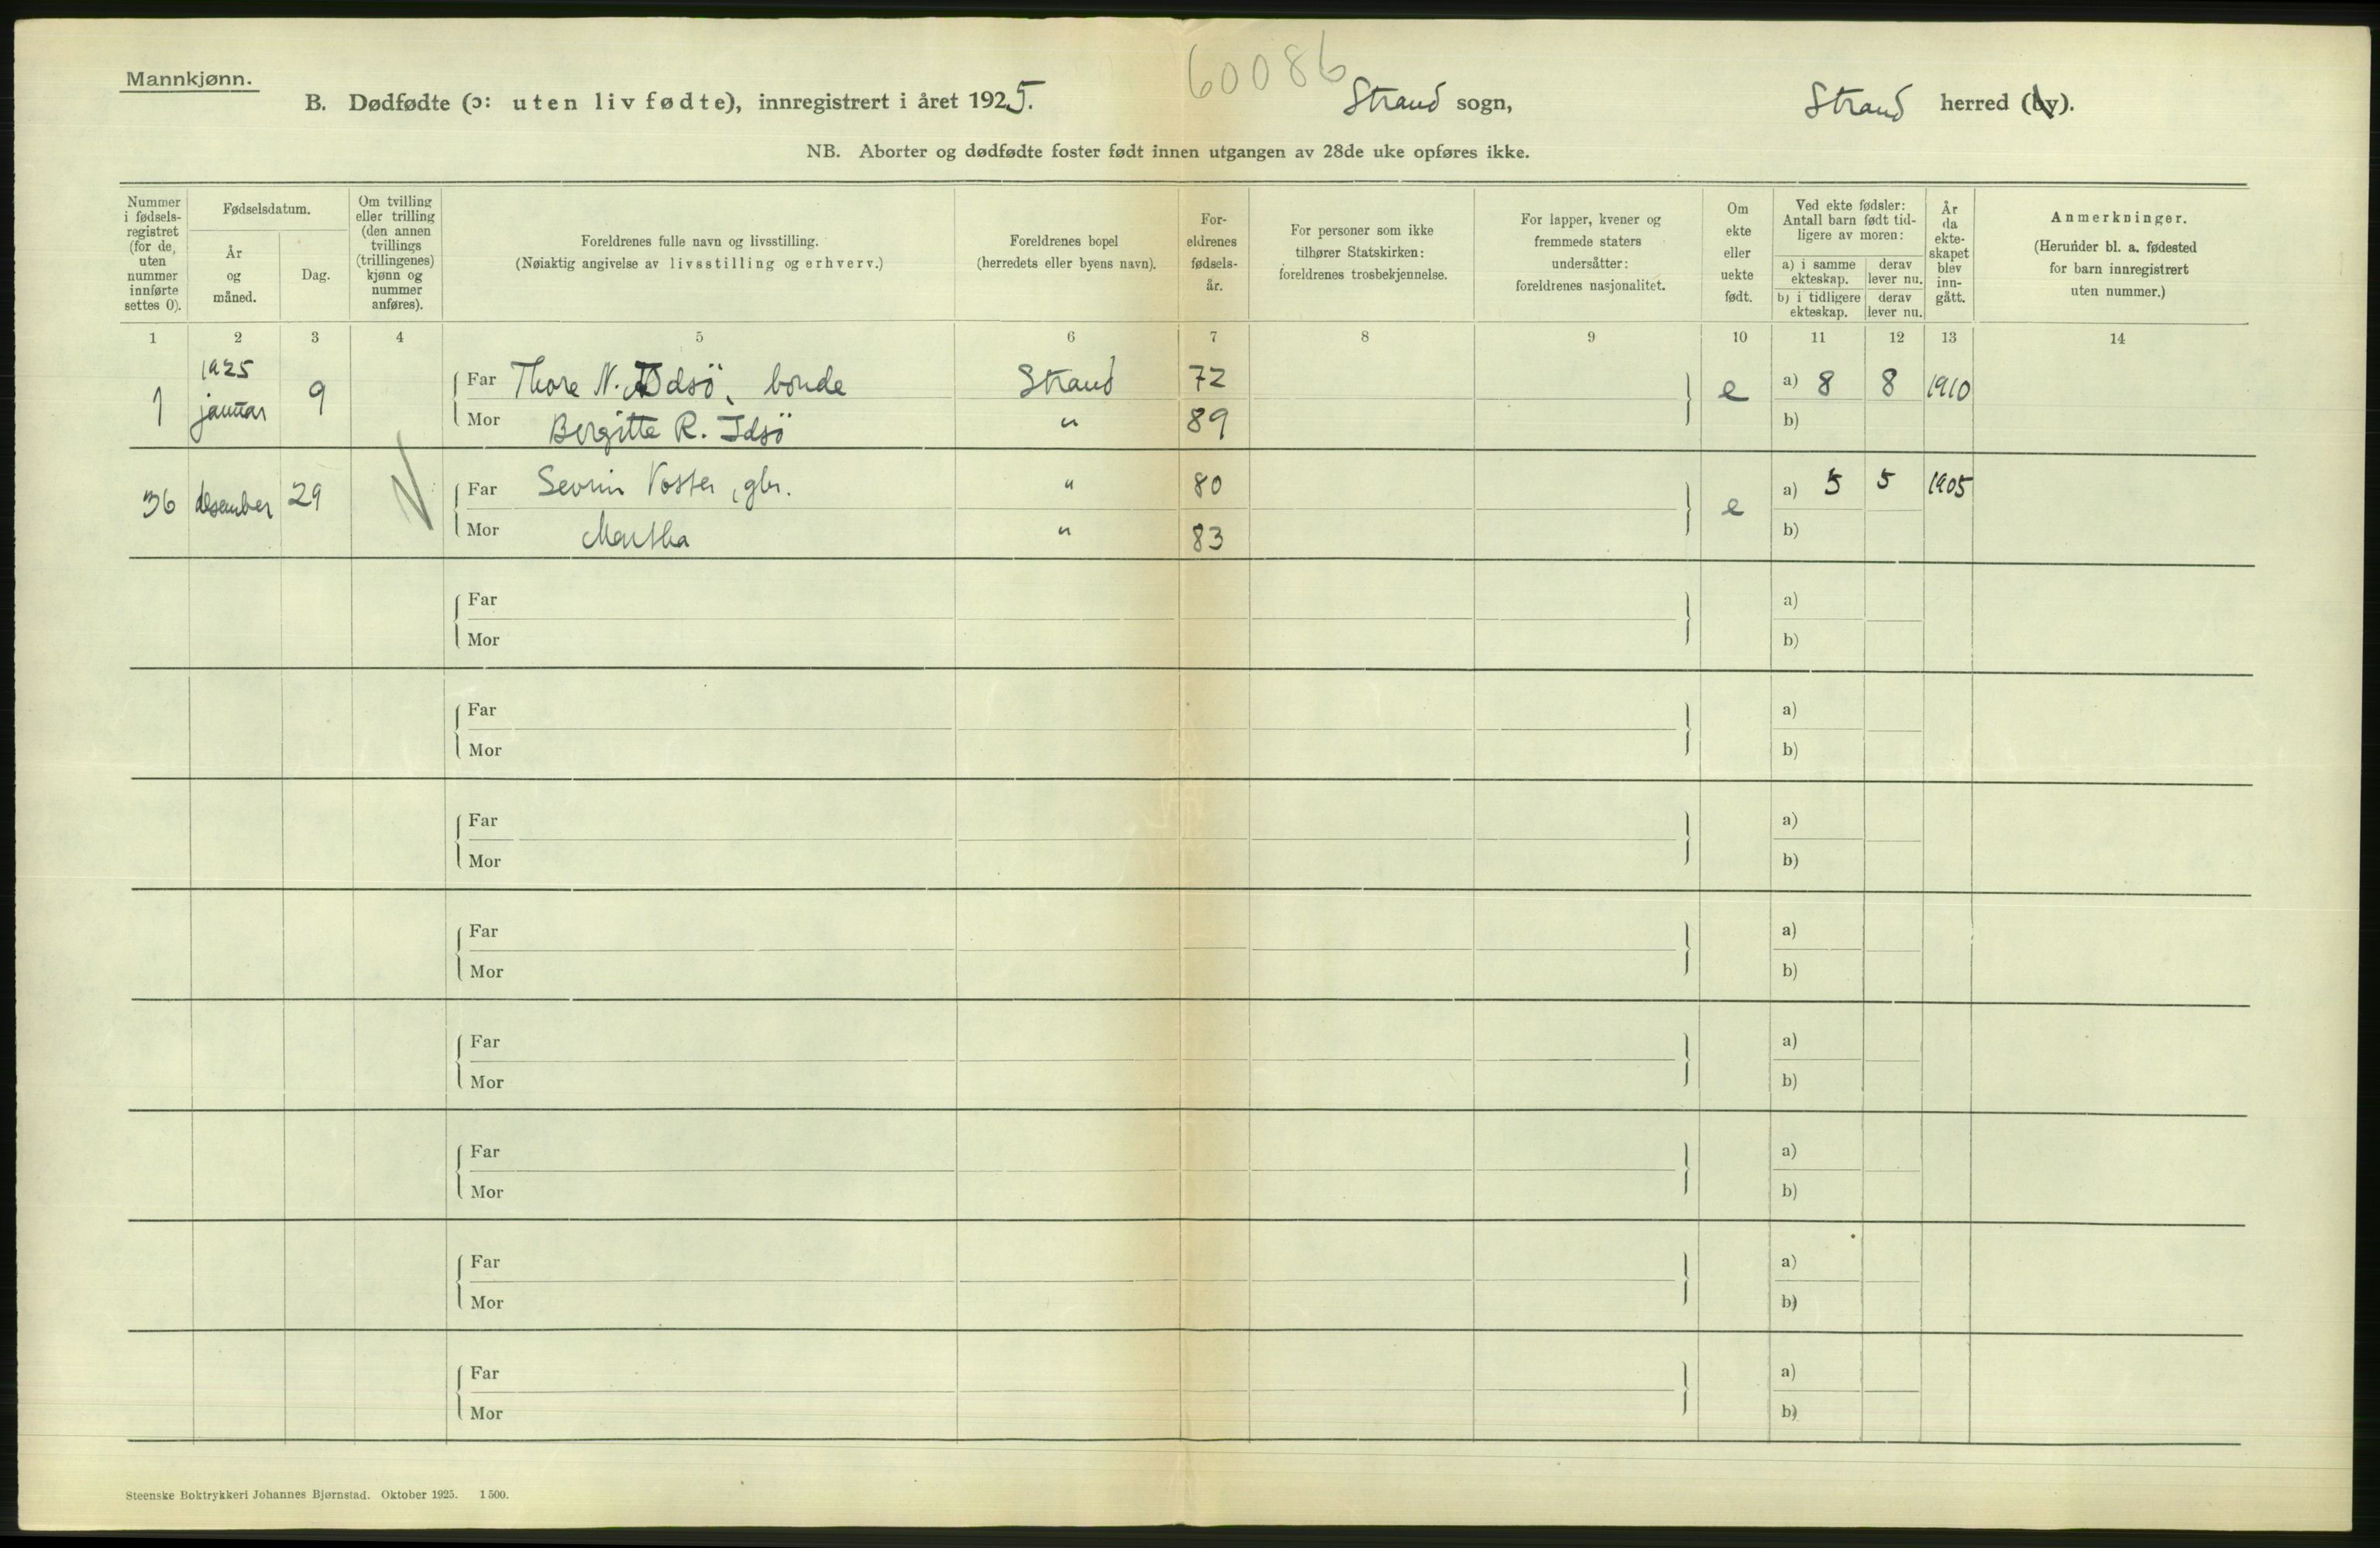 60086
Mannkjønn.
B. Dødfødte (ɔ: uten liv fødte), innregistrert i året 1925. Strand sogn, Strand herred (by).
NB. Aborter og dødfødte foster født innen utgangen av 28de uke opføres ikke.
Nummer
i fødsels-
registret
(for de,
uten
nummer
innførte
settes 0).
Fødselsdatum.
År
og
måned.
Dag.
Om tvilling
eller trilling
(den annen
tvillings
(trillingenes)
kjønn og
nummer
anføres).
Foreldrenes fulle navn og livsstilling.
(Nøiaktig angivelse av livsstilling og erhverv.)
Foreldrenes bopel
(herredets eller byens navn).
For-
eldrenes
fødsels-
år.
For personer som ikke
tilhører Statskirken:
foreldrenes trosbekjennelse.
For lapper, kvener og
fremmede staters
undersåtter:
foreldrenes nasjonalitet.
Om
ekte
eller
uekte
født.
Ved ekte fødsler:
Antall barn født tid-
ligere av moren:
a) i samme
ekteskap.
derav
lever nu.
b) i tidligere
ekteskap.
derav
lever nu.
År
da
ekte-
skapet
blev
inn-
gått.
Anmerkninger.
(Herunder bl. a. fødested
for barn innregistrert
uten nummer.)
1 2 3 4 5 6 7 8 9 10 11 12 13 14
1925
1 januar 9 Far Thore N. Idsö, bonde Strand 72 e a) 8 8 1910
Mor Bergitte R. Idsö " 89 b)
36 desember 29 Far Sevrin Voster, gbr. " 80 e a) 5 5 1905
Mor Martha " 83 b)
Far a)
Mor b)
Far a)
Mor b)
Far a)
Mor b)
Far a)
Mor b)
Far a)
Mor b)
Far a)
Mor b)
Far a)
Mor b)
Far a)
Mor b)
Steenske Boktrykkeri Johannes Bjørnstad. Oktober 1925. 1500.